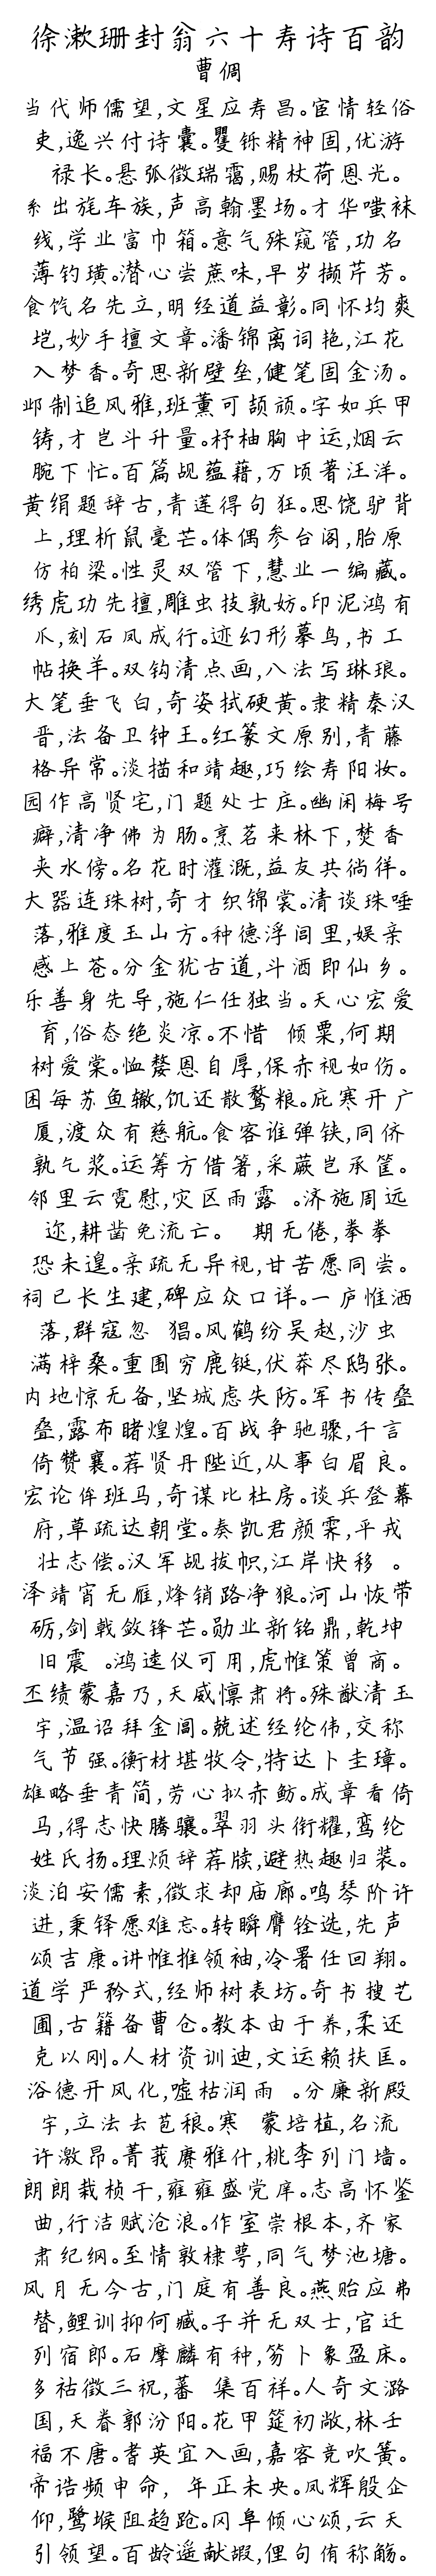 徐漱珊封翁六十寿诗百韵
曹倜
当代师儒望,文星应寿昌。宦情轻俗
吏,逸兴付诗囊。矍铄精神固,优游
禄长。悬弧徵瑞霭,赐杖荷恩光。
系出旄车族,声高翰墨场。才华嗤袜
线,学业富巾箱。意气殊窥管,功名
薄钓璜。潜心尝蔗味,早岁撷芹芳。
食饩名先立,明经道益彰。同怀均爽
垲,妙手擅文章。潘锦离词艳,江花
入梦香。奇思新壁垒,健笔固金汤。
邺制追风雅,班薰可颉颃。字如兵甲
铸,才岂斗升量。杼柚胸中运,烟云
腕下忙。百篇觇蕴藉,万顷著汪洋。
黄绢题辞古,青莲得句狂。思饶驴背
上,理析鼠毫芒。体偶参台阁,胎原
仿柏梁。性灵双管下,慧业一编藏。
绣虎功先擅,雕虫技孰妨。印泥鸿有
爪,刻石凤成行。迹幻形摹鸟,书工
帖换羊。双钩清点画,八法写琳琅。
大笔垂飞白,奇姿拭硬黄。隶精秦汉
晋,法备卫钟王。红篆文原别,青藤
格异常。淡描和靖趣,巧绘寿阳妆。
园作高贤宅,门题处士庄。幽闲梅号
癖,清净佛为肠。烹茗来林下,焚香
夹水傍。名花时灌溉,益友共徜徉。
大器连珠树,奇才织锦裳。清谈珠唾
落,雅度玉山方。种德浮闾里,娱亲
感上苍。分金犹古道,斗酒即仙乡。
乐善身先导,施仁任独当。天心宏爱
育,俗态绝炎凉。不惜 倾粟,何期
树爱棠。恤嫠恩自厚,保赤视如伤。
困每苏鱼辙,饥还散鹜粮。庇寒开广
厦,渡众有慈航。食客谁弹铗,同侪
孰乞浆。运筹方借箸,采蕨岂承筐。
邻里云霓慰,灾区雨露 。济施周远
迩,耕凿免流亡。 期无倦,拳拳
恐未遑。亲疏无异视,甘苦愿同尝。
祠已长生建,碑应众口详。一庐惟洒
落,群寇忽 猖。风鹤纷吴赵,沙虫
满梓桑。重围穷鹿铤,伏莽尽鸱张。
内地惊无备,坚城虑失防。军书传叠
叠,露布睹煌煌。百战争驰骤,千言
倚赞襄。荐贤丹陛近,从事白眉良。
宏论侔班马,奇谋比杜房。谈兵登幕
府,草疏达朝堂。奏凯君颜霁,平戎
壮志偿。汉军觇拔帜,江岸快移 。
泽靖宵无雁,烽销路净狼。河山恢带
砺,剑戟敛锋芒。勋业新铭鼎,乾坤
旧震 。鸿逵仪可用,虎帷策曾商。
丕绩蒙嘉乃,天威懔肃将。殊猷清玉
宇,温诏拜金闾。兢述经纶伟,交称
气节强。衡材堪牧令,特达卜圭璋。
雄略垂青简,劳心拟赤鲂。成章看倚
马,得志快腾骧。翠羽头衔耀,鸾纶
姓氏扬。理烦辞荐牍,避热趣归装。
淡泊安儒素,徵求却庙廊。鸣琴阶许
进,秉铎愿难忘。转瞬膺铨选,先声
颂吉康。讲帷推领袖,冷署任回翔。
道学严矜式,经师树表坊。奇书搜艺
圃,古籍备曹仓。教本由于养,柔还
克以刚。人材资训迪,文运赖扶匡。
浴德开风化,嘘枯润雨 。分廉新殿
宇,立法去苞稂。寒 蒙培植,名流
许激昂。菁莪赓雅什,桃李列门墙。
朗朗栽桢干,雍雍盛党庠。志高怀鉴
曲,行洁赋沧浪。作室崇根本,齐家
肃纪纲。至情敦棣萼,同气梦池塘。
风月无今古,门庭有善良。燕贻应弗
替,鲤训抑何臧。子并无双士,官迁
列宿郎。石摩麟有种,笏卜象盈床。
多祜徵三祝,蕃 集百祥。人奇文潞
国,天眷郭汾阳。花甲筵初敞,林壬
福不唐。耆英宜入画,嘉客竞吹簧。
帝诰频申命, 年正未央。凤辉殷企
仰,鹭堠阻趋跄。冈阜倾心颂,云天
引领望。百龄遥献嘏,俚句侑称觞。